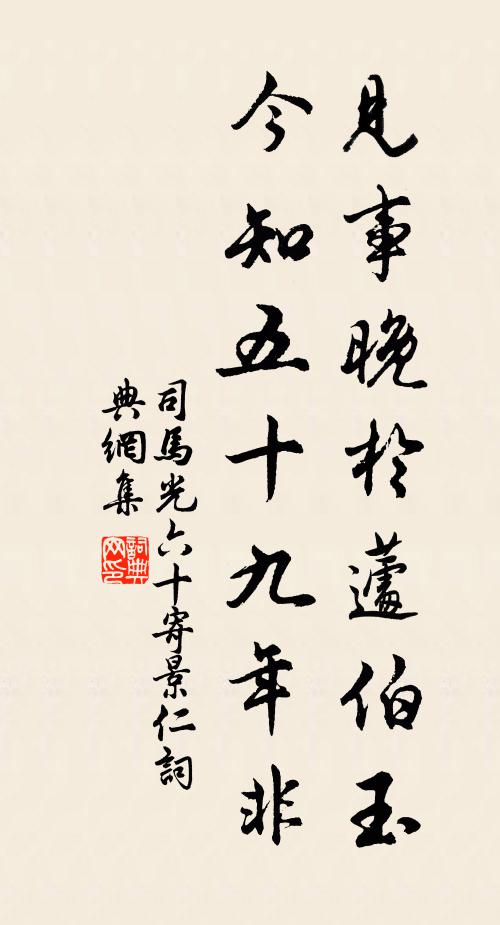 見事晚於蘧伯玉
今知五十九年非
司馬光六十寄景仁詞
典網集
詞典网印